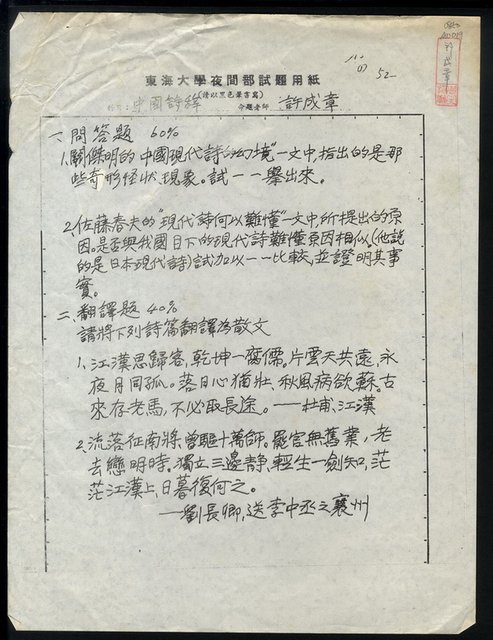 東海大學夜間部試題用紙
(請以黑色筆書寫)
中國詩繹 命題老師 許成章
一、問答題 60%
1.關傑明的"中國現代詩的幻境"一文中,指出的是那
些奇形怪狀現象。試一一舉出來。
2.佐藤春夫的"現代詩何以難懂"一文中,所提出的原
因。是否與我國目下的現代詩難懂原因相似(他說
的是日本現代詩)試加以一一比較,並證明其事
實。
二、翻譯題 40%
請將下列詩篇翻譯為散文
1.江漢思歸客,乾坤一腐儒。片雲天共遠,永
夜月同孤。落日心猶壯,秋風病欲蘇。古
來存老馬,不必取長途。——杜甫、江漢
2.流落征南將,曾驅十萬師。罷官無舊業,老
去戀明時。獨立三邊靜,輕生一劍知,茫
茫江漢上,日暮復何之。
——劉長卿,送李中丞之襄州